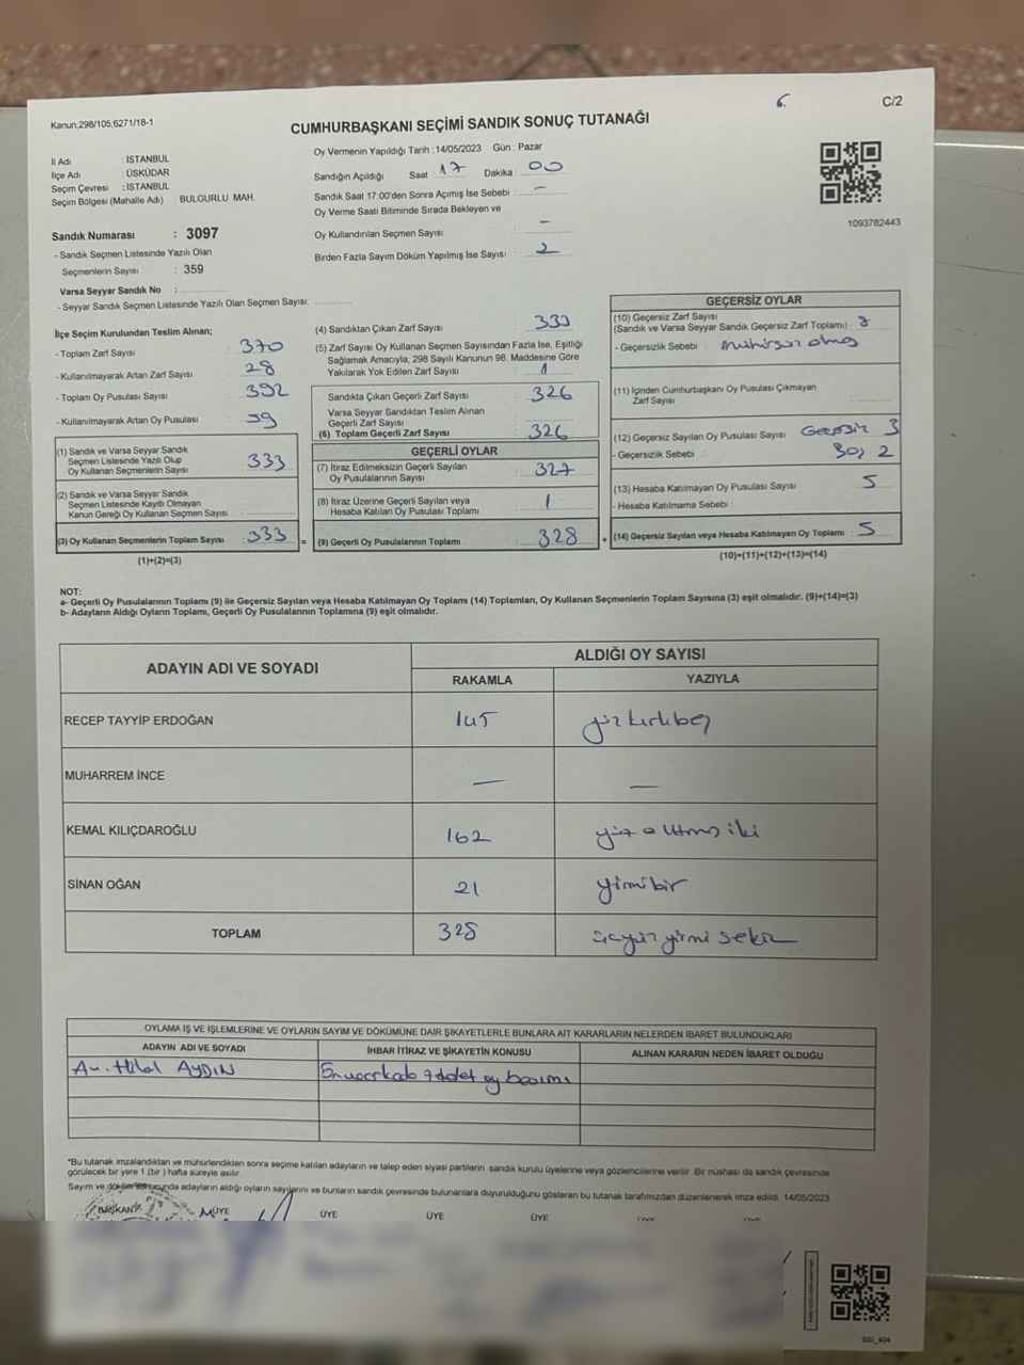 6.
C/2
Kanun:298/105;6271/18-1
CUMHURBAŞKANI SEÇİMİ SANDIK SONUÇ TUTANAĞI
İl Adı : İSTANBUL
İlçe Adı : ÜSKÜDAR
Seçim Çevresi : İSTANBUL
Seçim Bölgesi (Mahalle Adı) BULGURLU MAH.
Sandık Numarası : 3097
- Sandık Seçmen Listesinde Yazılı Olan
Seçmenlerin Sayısı : 359
Varsa Seyyar Sandık No :
- Seyyar Sandık Seçmen Listesinde Yazılı Olan Seçmen Sayısı:
Oy Vermenin Yapıldığı Tarih :14/05/2023 Gün : Pazar
Sandığın Açıldığı Saat 17 Dakika 00
Sandık Saat 17:00'den Sonra Açımış İse Sebebi : —
Oy Verme Saati Bitiminde Sırada Bekleyen ve
Oy Kullandırılan Seçmen Sayısı : —
Birden Fazla Sayım Döküm Yapılmış İse Sayısı : 2
1093782443
İlçe Seçim Kurulundan Teslim Alınan;
- Toplam Zarf Sayısı 370
- Kullanılmayarak Artan Zarf Sayısı 28
- Toplam Oy Pusulası Sayısı 392
- Kullanılmayarak Artan Oy Pusulası 59
(1) Sandık ve Varsa Seyyar Sandık
Seçmen Listesinde Yazılı Olup
Oy Kullanan Seçmenlerin Sayısı 333
(2) Sandık ve Varsa Seyyar Sandık
Seçmen Listesinde Kayıtlı Olmayan
Kanun Gereği Oy Kullanan Seçmen Sayısı
(3) Oy Kullanan Seçmenlerin Toplam Sayısı : 333 =
(1)+(2)=(3)
(4) Sandıktan Çıkan Zarf Sayısı 333
(5) Zarf Sayısı Oy Kullanan Seçmen Sayısından Fazla İse, Eşitliği
Sağlamak Amacıyla, 298 Sayılı Kanunun 98. Maddesine Göre
Yakılarak Yok Edilen Zarf Sayısı 1
Sandıkta Çıkan Geçerli Zarf Sayısı 326
Varsa Seyyar Sandıktan Teslim Alınan
Geçerli Zarf Sayısı
(6) Toplam Geçerli Zarf Sayısı 326
GEÇERLİ OYLAR
(7) İtiraz Edilmeksizin Geçerli Sayılan
Oy Pusulalarının Sayısı 327
(8) İtiraz Üzerine Geçerli Sayılan veya
Hesaba Katılan Oy Pusulası Toplamı 1
(9) Geçerli Oy Pusulalarının Toplamı 328 +
GEÇERSİZ OYLAR
(10) Geçersiz Zarf Sayısı
(Sandık ve Varsa Seyyar Sandık Geçersiz Zarf Toplamı)
- Geçersizlik Sebebi
(11) İçinden Cumhurbaşkanı Oy Pusulası Çıkmayan
Zarf Sayısı
(12) Geçersiz Sayılan Oy Pusulası Sayısı Geçersiz 3
- Geçersizlik Sebebi Boş 2
(13) Hesaba Katılmayan Oy Pusulası Sayısı 5
- Hesaba Katılmama Sebebi
(14) Geçersiz Sayılan veya Hesaba Katılmayan Oy Toplamı : 5
(10)+(11)+(12)+(13)=(14)
NOT:
a- Geçerli Oy Pusulalarının Toplamı (9) ile Geçersiz Sayılan veya Hesaba Katılmayan Oy Toplamı (14) Toplamları, Oy Kullanan Seçmenlerin Toplam Sayısına (3) eşit olmalıdır. (9)+(14)=(3)
b- Adayların Aldığı Oyların Toplamı, Geçerli Oy Pusulalarının Toplamına (9) eşit olmalıdır.
ADAYIN ADI VE SOYADI
ALDIĞI OY SAYISI
RAKAMLA YAZIYLA
RECEP TAYYİP ERDOĞAN 145 yüzkırkbeş
MUHARREM İNCE — —
KEMAL KILIÇDAROĞLU 162 yüz altmış iki
SİNAN OĞAN 21 yirmibir
TOPLAM 328 üçyüz yirmi sekiz
OYLAMA İŞ VE İŞLEMLERİNE VE OYLARIN SAYIM VE DÖKÜMÜNE DAİR ŞİKAYETLERLE BUNLARA AİT KARARLARIN NELERDEN İBARET BULUNDUKLARI
ADAYIN ADI VE SOYADI İHBAR İTİRAZ VE ŞİKAYETİN KONUSU ALINAN KARARIN NEDEN İBARET OLDUĞU
Av. Hilal AYDIN
*Bu tutanak imzalandıktan ve mühürlendikten sonra seçime katılan adayların ve talep eden siyasi partilerin sandık kurulu üyelerine veya gözlemcilerine verilir. Bir nüshası da sandık çevresinde
görülecek bir yere 1 (bir) hafta süreyle asılır.
Sayım ve döküm sonucunda adayların aldığı oyların sayılarını ve bunların sandık çevresinde bulunanlara duyurulduğunu gösteren bu tutanak tarafımızdan düzenlenerek imza edildi. 14/05/2023
BAŞKAN ÜYE ÜYE ÜYE ÜYE